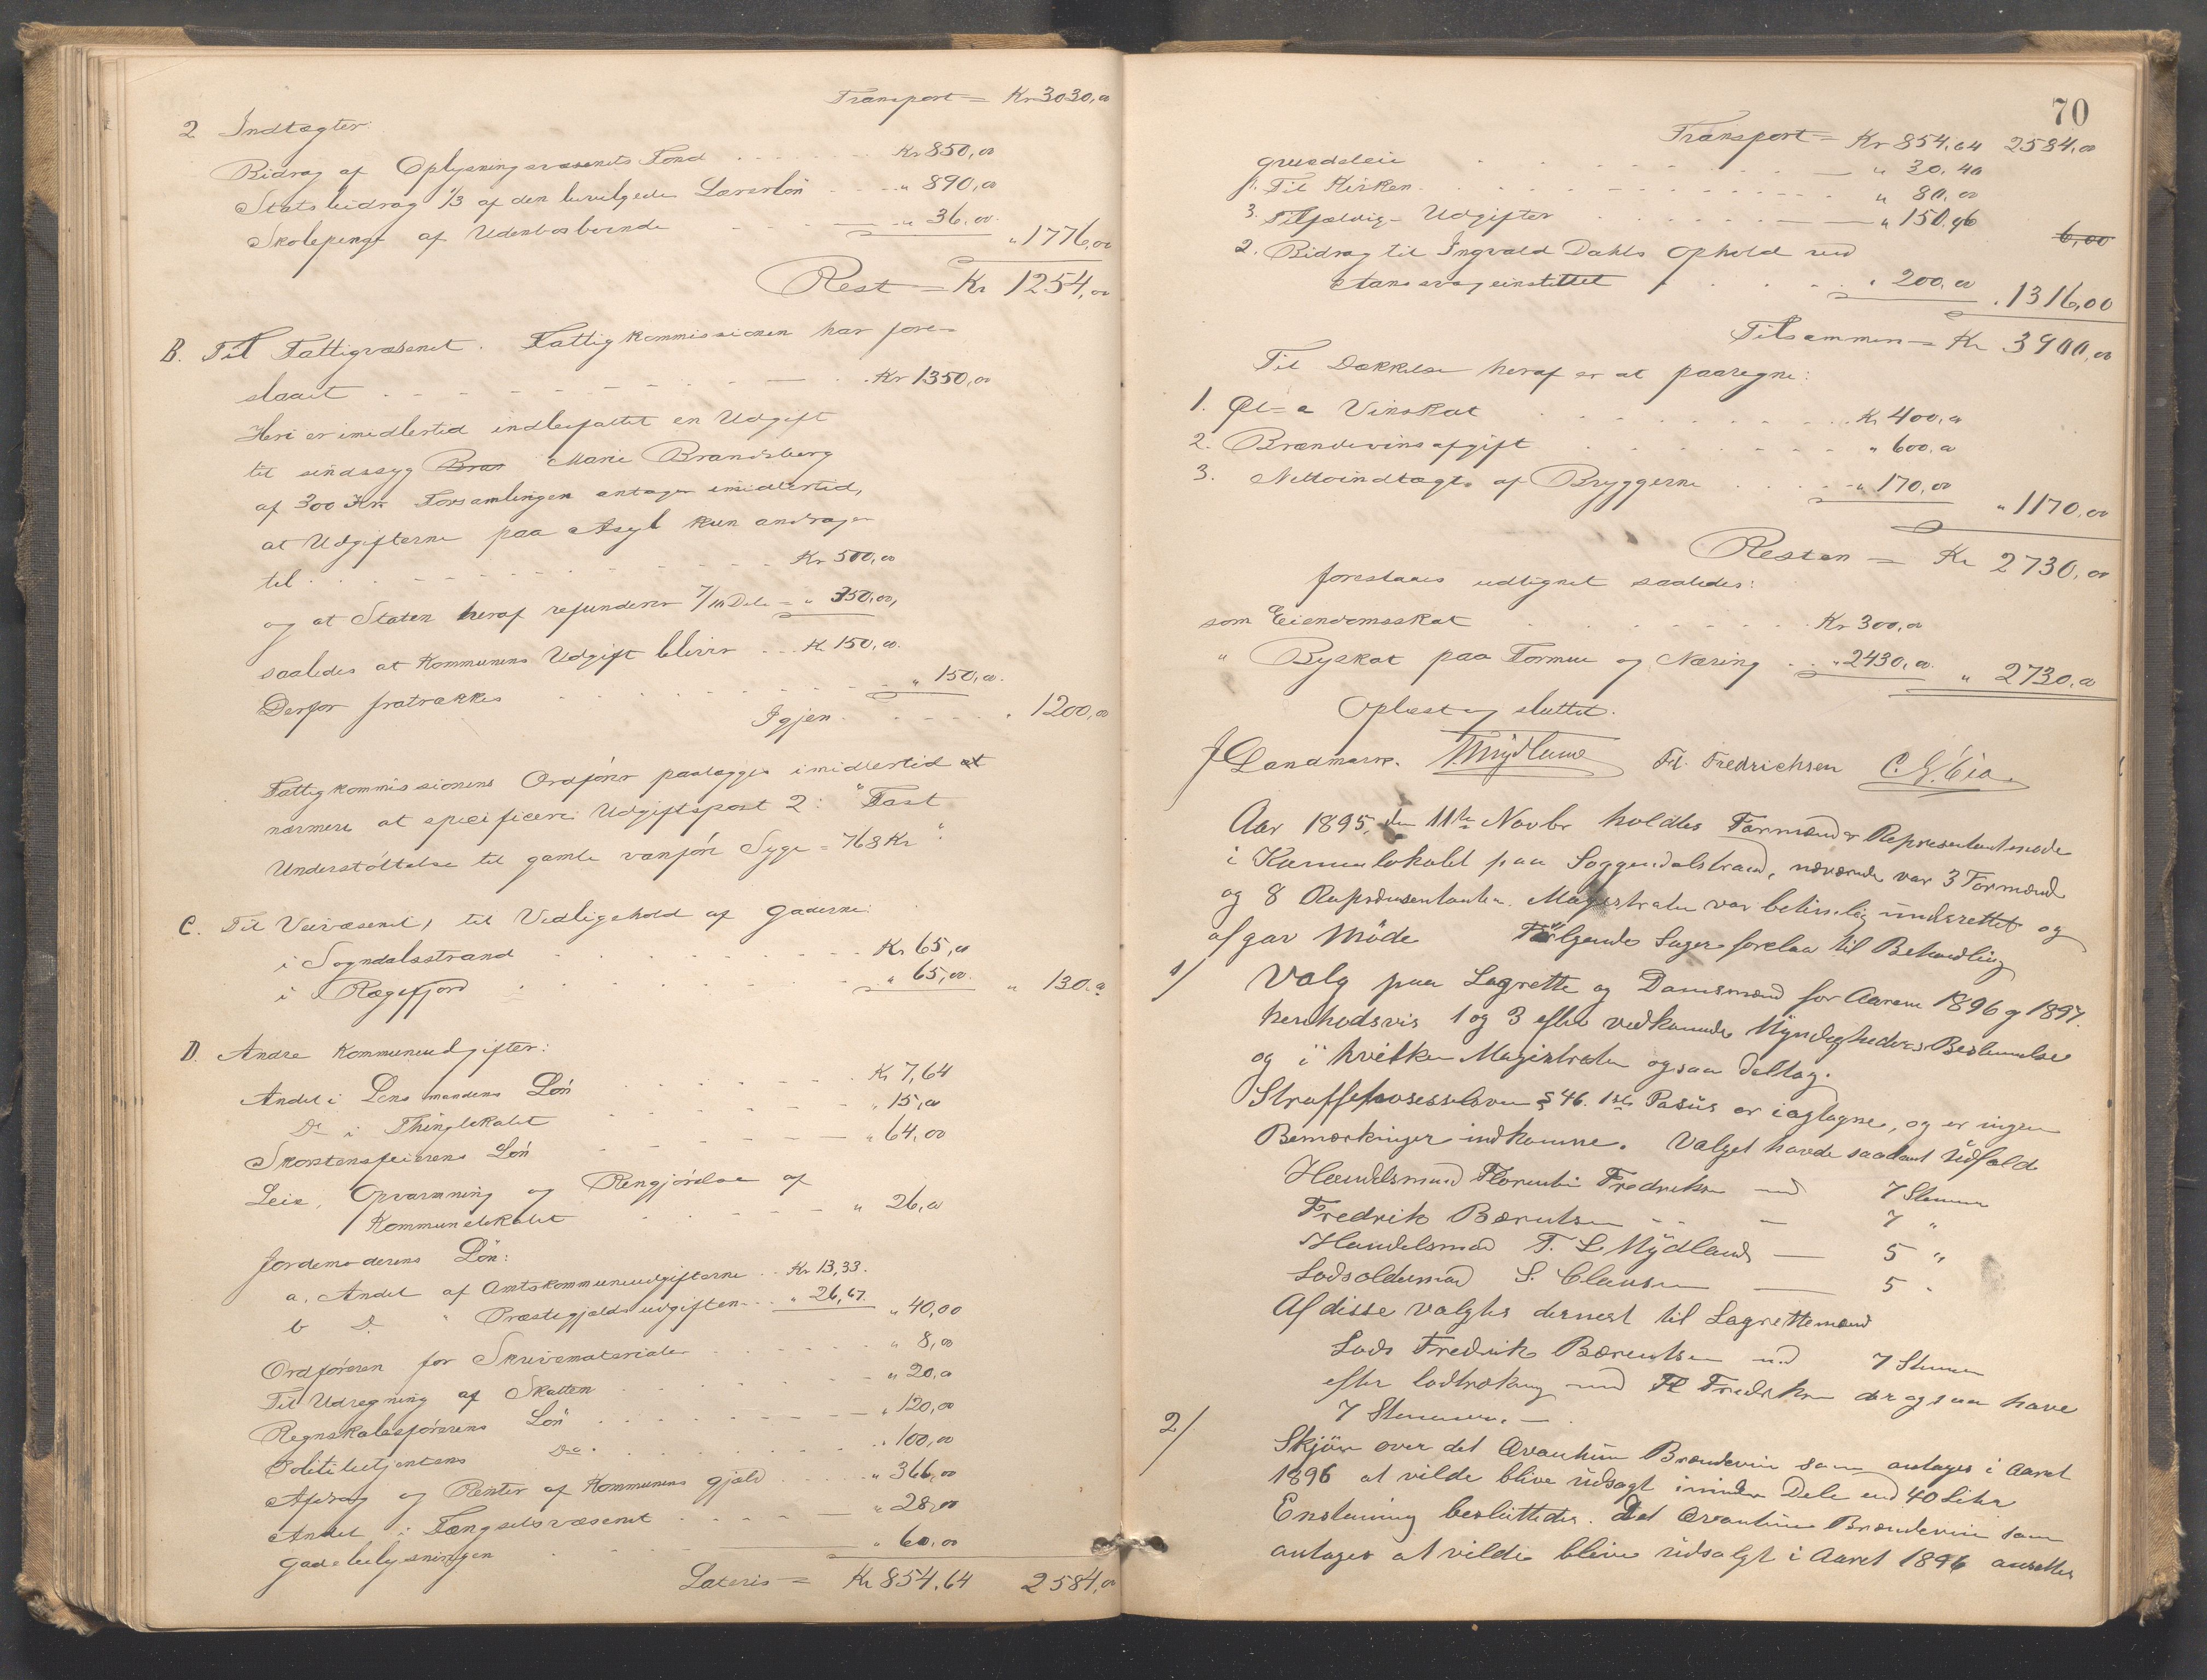 Transport = Kr 3030,00
2 Indtægter:
Bidrag af Oplysningsvæsenets Fond Kr 850,00
Statsbidrag 1/3 af den bevilgede Lærerløn " 890,00
Skolepenge af Udenbosboende " 36,00 " 1776,00
Rest = Kr 1254,00
B. Til Fattigvæsenet. Fattigkommissionen har fore-
slaaet Kr 1350,00
Heri er imidlertid indbefattet en Udgift
til sindssyg Marie Brandsberg
af 300 Kr. Forsamlingen antager imidlertid,
at Udgifterne paa Asyl kun andrager
til Kr 500,00
og at Staten heraf refunderer 7/10 Dele = " 350,00,
saaledes at Kommunens Udgift bliver Kr 150,00.
Derfor fratrækkes " 150,00.
Igjen " 1200,00
Fattigkommissionens Ordfører paalægges imidlertid at
nærmere at specificere Udgiftspost 2: "Fast
Understøttelse til gamle vanføre Syge = 768 Kr".
C. Til Veivæsenet, til Vedligehold af Gaderne:
i Sogndalsstrand Kr 65,00
i Rægefjord " 65,00 " 130,00
D. Andre Kommuneudgifter:
Andel i Lensmandens Løn Kr 7,64
Do i Thinglokalet " 15,00
Skorstensfeierens Løn " 64,00
Leie, Opvarmning og Rengjørelse af
Kommunelokalet " 26,00
Jordemoderens Løn:
a. Andel af Amtskommuneudgifterne Kr 13,33.
b Do " Præstegjeldsudgiften " 26,67. " 40,00
Ordføreren for Skrivematerialer " 8,00
Til Udregning af Skatten " 20,00
Regnskabsførerens Løn " 120,00
Politibetjentens Do " 100,00
Afdrag og Renter af Kommunens Gjæld " 366,00
Andel i Fængselsvæsenet " 28,00
Gadebelysningen " 60,00
Lateris = Kr 854,64 2584,00
70
Transport = Kr 854,64 2584,00
" 30,40
Til Kirken " 80,00
3. Tilfældige Udgifter " 150,96
6,00
2. Bidrag til Ingvald Dahls Ophold ved
Aandssvageinstituttet " 200,00 " 1316,00
Tilsammen = Kr 3900,00
Til Dækkelse heraf er at paaregne:
1. Øl- & Vinskat Kr 400,00
2. Brændevinsafgift " 600,00
3. Nettoindtægt af Bryggerne " 170,00 " 1170,00
Resten = Kr 2730,00
foreslaaes udlignet saaledes:
som Eiendomsskat Kr 300,00
" Byskat paa Formue og Næring " 2430,00 " 2730,00
Oplæst og sluttet.
J Landmark. T Mydland Fl. Fredrichsen C. G. Eia
Aar 1895, den 11te Novbr holdtes Formænd og Repræsentantmøde
i Kommunelokalet paa Soggendalstrand, nærværende var 3 Formænd
og 8 Repræsentanter. Magistraten var betimelig underrettet og
afgav Møde Følgende Sager forelaa til Behandling
1/ Valg paa Lagrette og Domsmænd for Aarene 1896 og 1897.
henholdsvis 1 og 3 efter vedkommende Myndigheders Bestemmelse
og i hvilken Magistraten ogsaa deltog.
Straffeprosessloven § 46. 1ste Pasus er iagtagne, og er ingen
Bemærkninger indkomne. Valget havde saadant Udfald
Handelsmand Florentin Fredriksen med 7 Stemmer
Fredrik Bærentsen - 7 "
Handelsmand T. L. Mydland — 5 "
Lodsoldermand S. Clausen — 5 "
Af disse valgtes dernest til Lagrettemænd
Lods Fredrik Bærentsen med 7 Stemmer
efter lodtrækning med Fl Fredriksen der ogsaa have
7 Stemmer. —
2/ Skjøn over det Qvantum Brændevin som antages i Aaret
1896 at vilde blive udsagt i mindre Dele end 40 Liter
Enstemmig besluttedes. Det Qvantum Brændevin som
antages at vilde blive udsalgt i Aaret 1896 ansettes